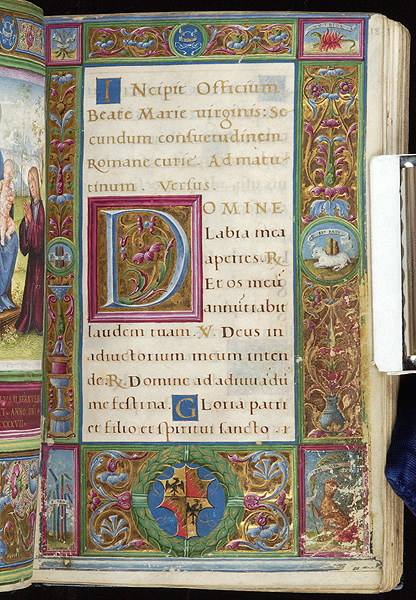 Incipit Officium
Beate Marie virginis: Se
cundum consuetudinem
Romane curie. Ad matu-
tinum Versus.
DOMINE
Labia mea
aperies. R.
Et os meũ
annuntiabit
laudem tuam. V. Deus in
adiutorium meum inten
de. R. Domine ad adiuuãdũ
me festina. Gloria patri
et filio et spiritui sancto